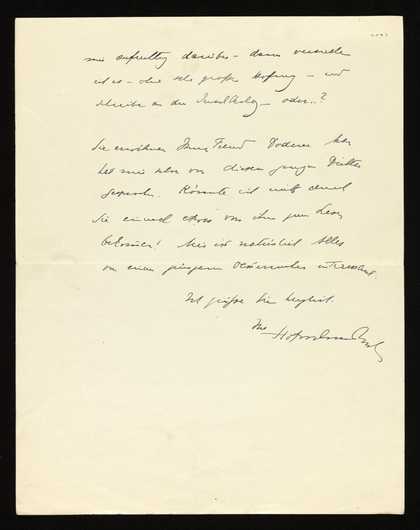 mir aufrichtig darüber – dann
ich es – ohne sehr große Hoffnung – und
schreibe an den Insel Verlag – oder..?
Sie erwähnen Ihren Freund Doderer
hat mir schon von diesem jungen Dichter
gesprochen. Könnte ich durch
Sie einmal etwas von ihm zum Lesen
bekommen! Mir ist natürlich Alles
von einem jüngeren Österreicher interessant
Ich grüße Sie herzlich.
Ihr Hofmannsthal